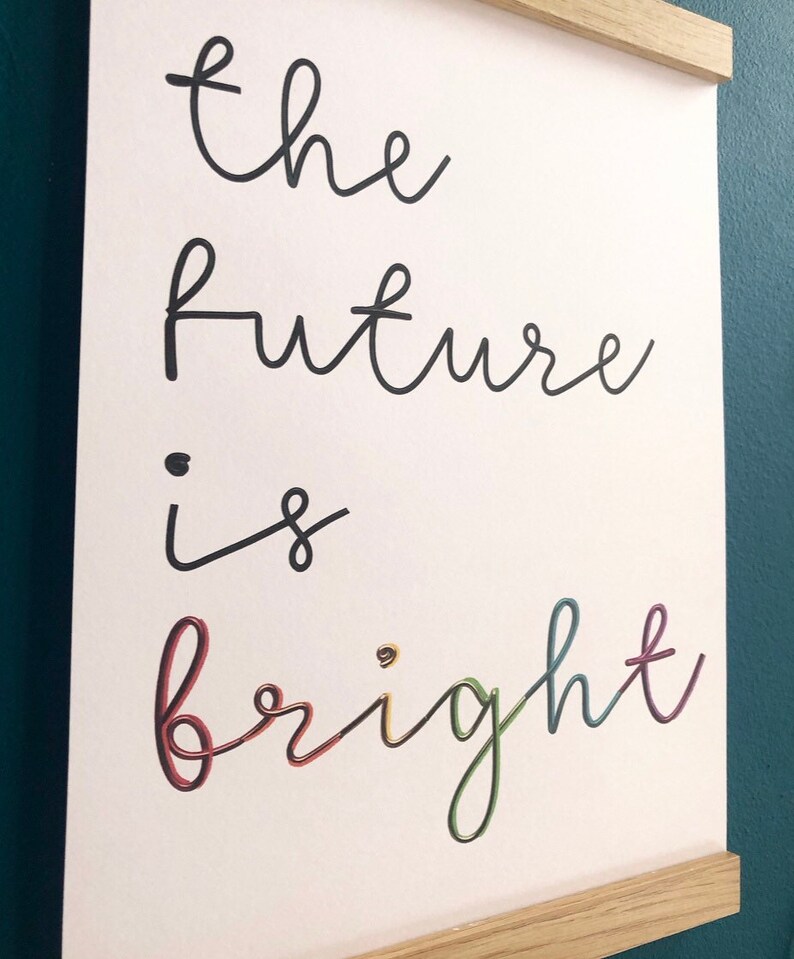 the
future
is
bright